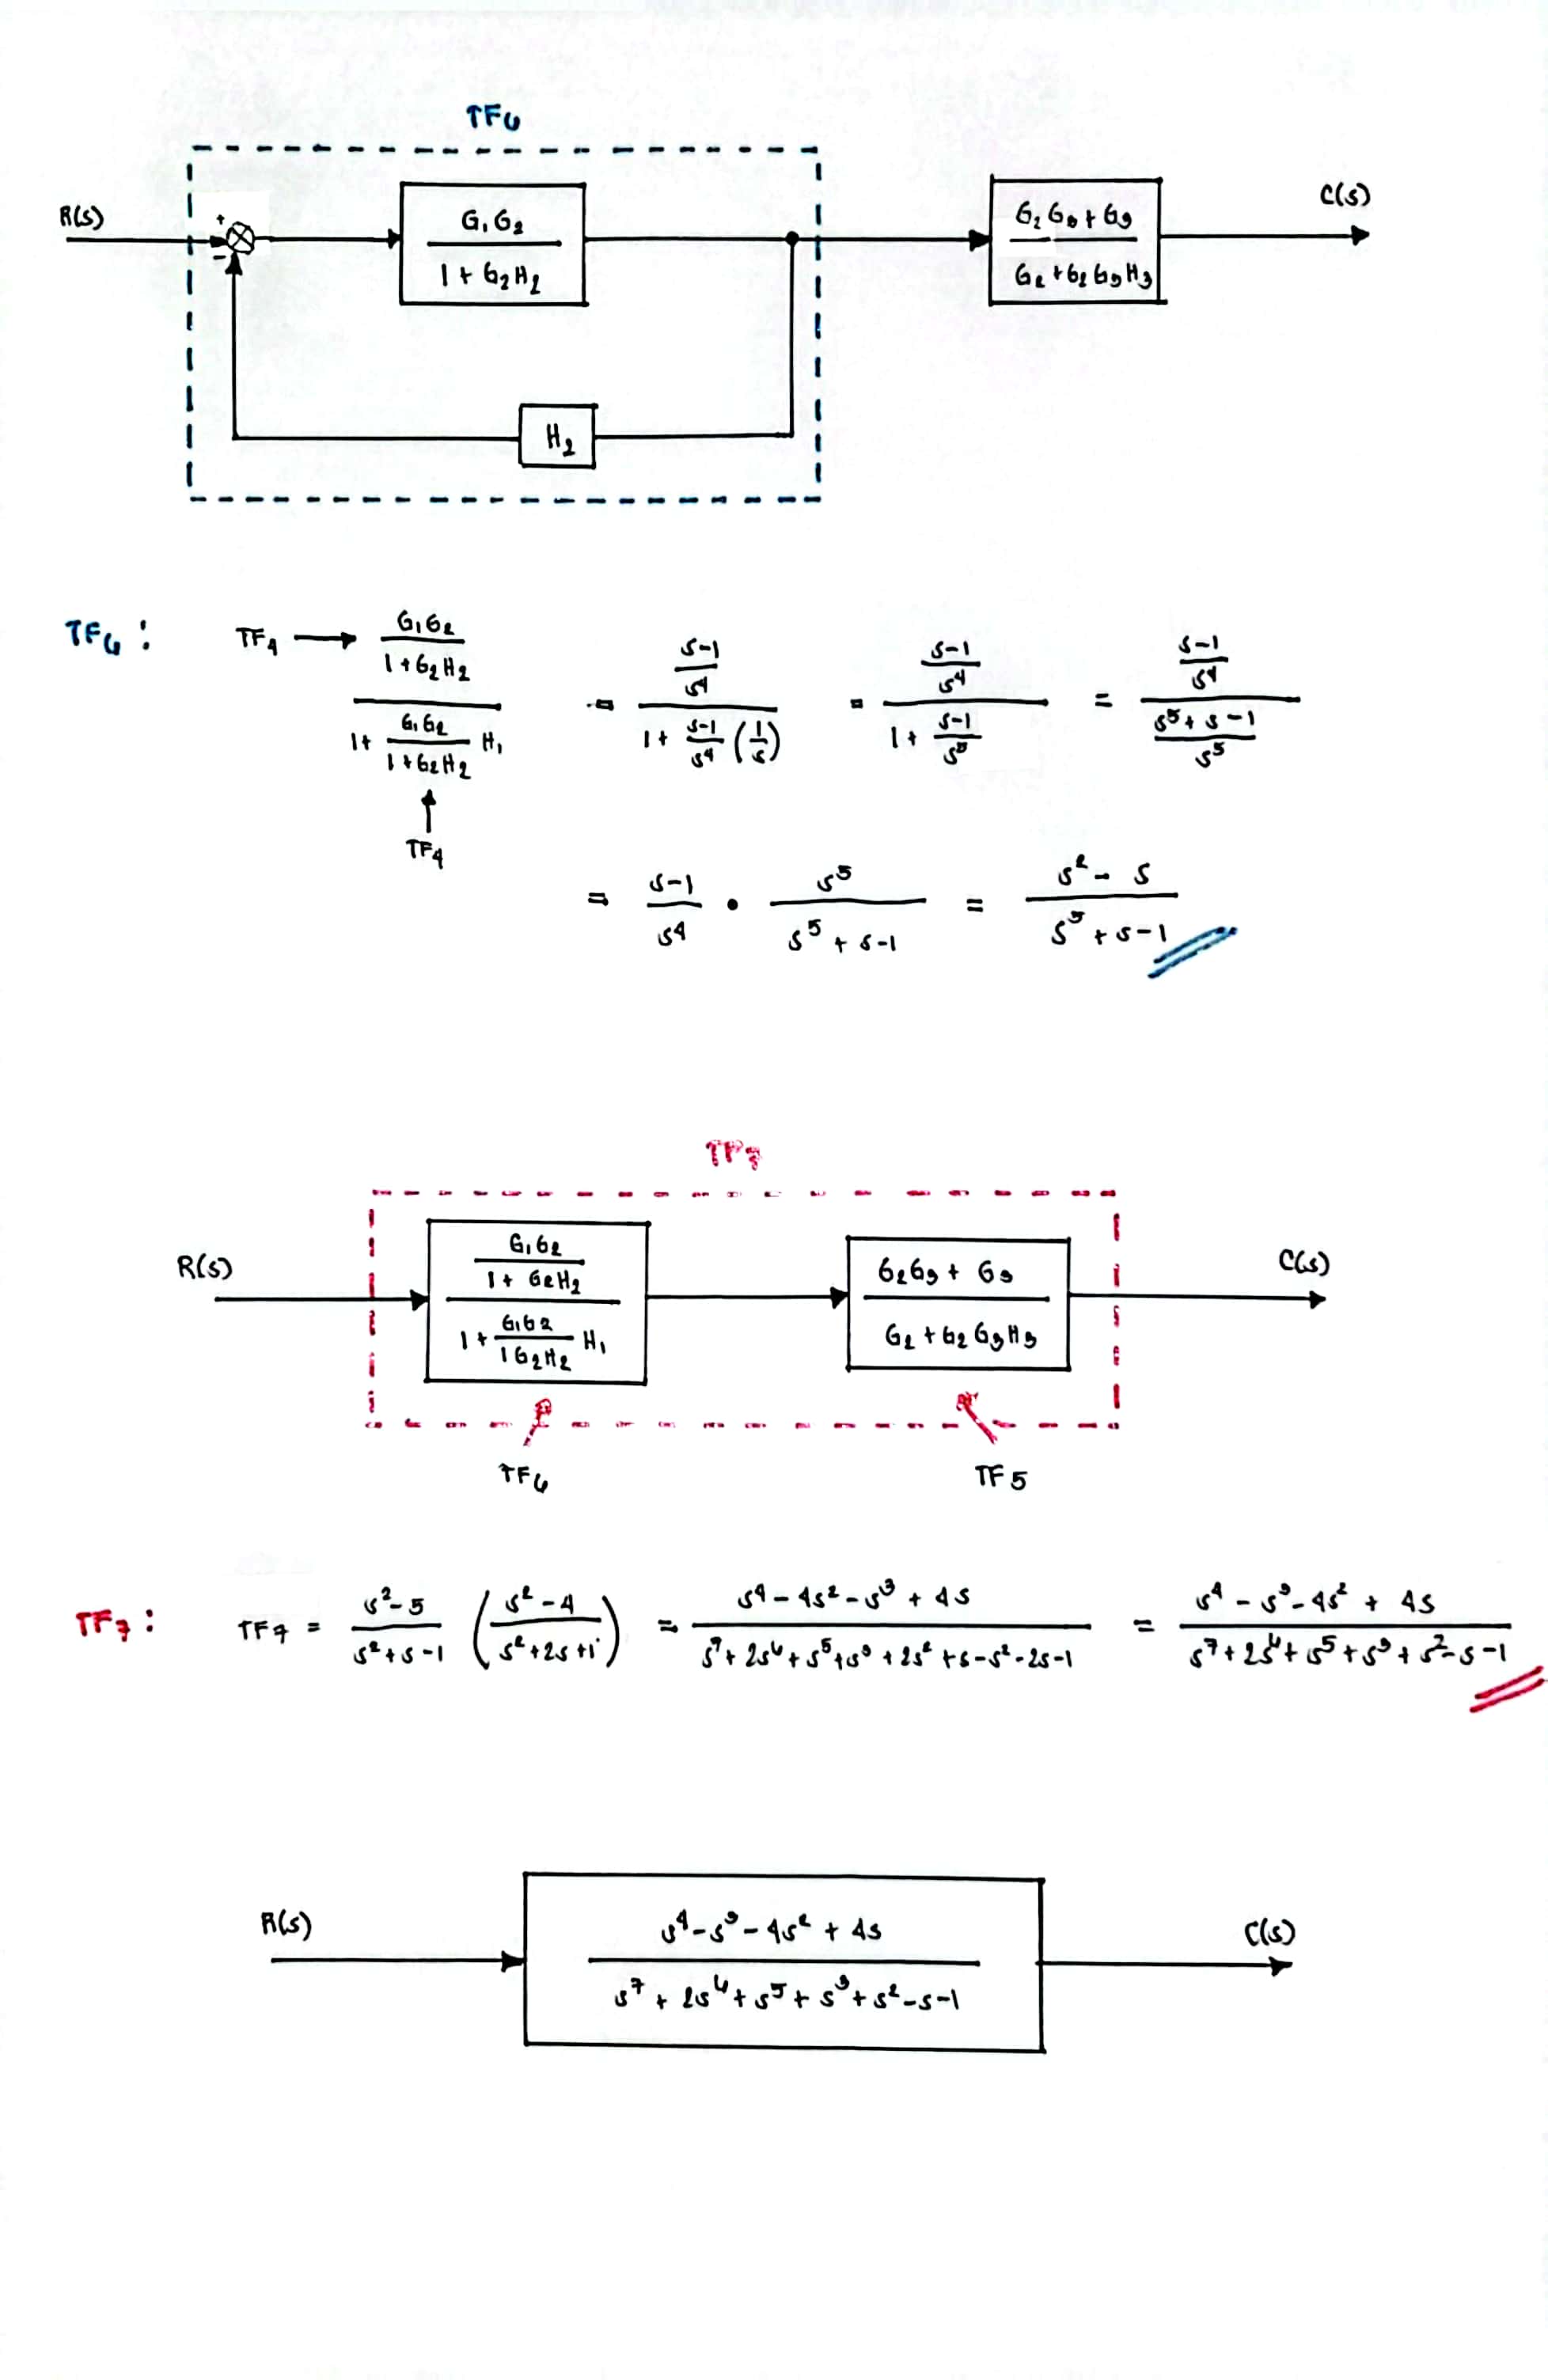 TF6
R(s)
+
-
G1G2 / 1 + G2H2
G2G3 + G3 / G2 + G2G3H3
C(s)
H2
TF6 :
TF4 → (G1G2 / 1+G2H2) / (1 + (G1G2 / 1+G2H2) H1) = ((s-1)/s^4) / (1 + (s-1)/s^4 (1/s)) = ((s-1)/s^4) / (1 + (s-1)/s^5) = ((s-1)/s^4) / ((s^5 + s - 1)/s^5)
↑
TF4
= (s-1)/s^4 • s^5/(s^5 + s - 1) = (s^2 - s)/(s^5 + s - 1)
TF7
R(s)
(G1G2 / 1 + G2H2) / (1 + (G1G2 / 1G2H2) H1)
G2G3 + G3 / G2 + G2G3H3
C(s)
TF6
TF5
TF7 :
TF7 = (s^2 - s)/(s^2 + s - 1) ((s^2 - 4)/(s^2 + 2s + 1)) = (s^4 - 4s^2 - s^3 + 4s)/(s^7 + 2s^6 + s^5 + s^3 + 2s^2 + s - s^2 - 2s - 1) = (s^4 - s^3 - 4s^2 + 4s)/(s^7 + 2s^6 + s^5 + s^3 + s^2 - s - 1)
R(s)
(s^4 - s^3 - 4s^2 + 4s)/(s^7 + 2s^6 + s^5 + s^3 + s^2 - s - 1)
C(s)